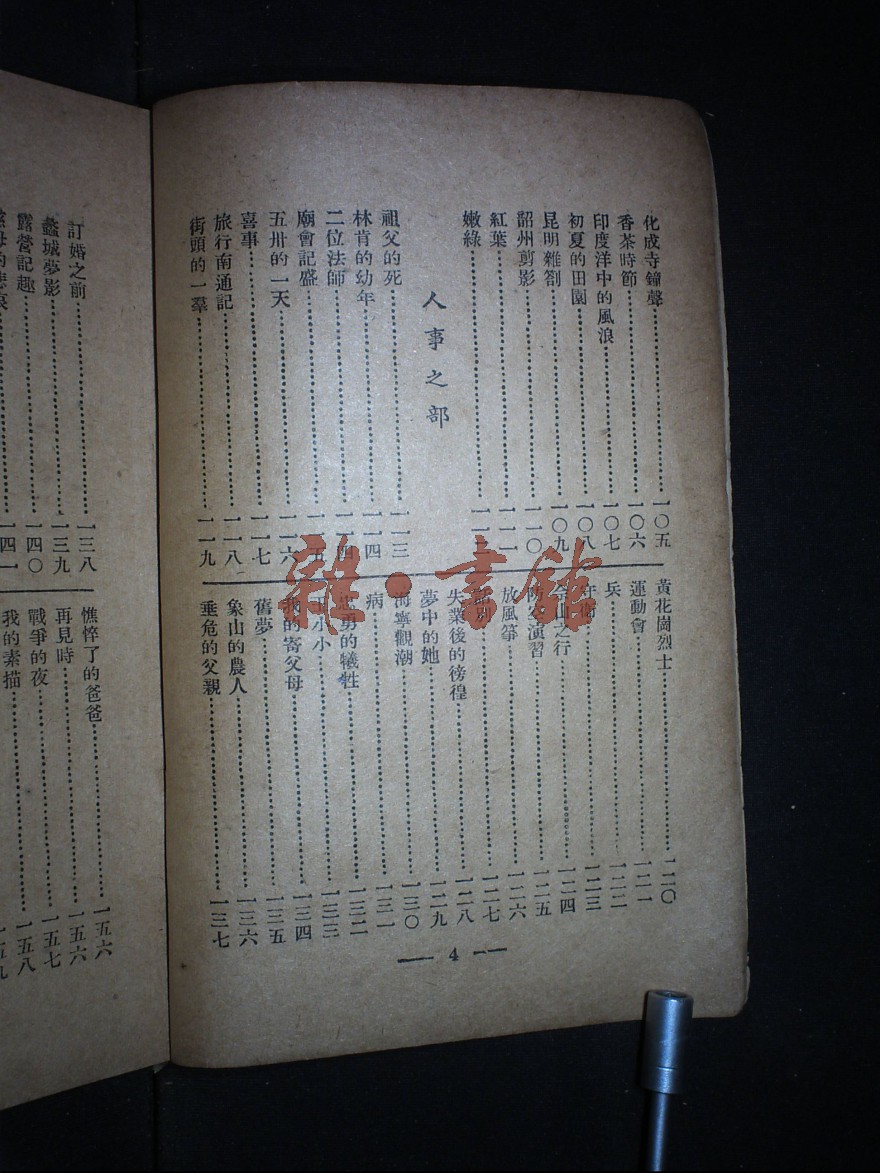 化成寺鐘聲 一〇五
香茶時節 一〇六
印度洋中的風浪 一〇七
初夏的田園 一〇八
昆明雜劄 一〇九
韶州剪影 一一〇
紅葉 一一一
嫩綠
人事之部
祖父的死 一一三
林肯的幼年 一一四
二位法師 一一四
廟會記盛
五卅的一天 一一六
喜事 一一七
旅行南通記 一一八
街頭的一羣 一一九
黃花崗烈士 一二〇
運動會 一二一
兵 一二二
一二三
山之行 一二四
防空演習 一二五
放風箏 一二六
別 一二七
失業後的徬徨 一二八
夢中的她 一二九
海寧觀潮 一三〇
病 一三一
忠勇的犧牲 一三二
小小 一三三
我的寄父母 一三四
舊夢 一三五
象山的農人 一三六
垂危的父親 一三七
— 4 —
訂婚之前 一三八
蠡城夢影 一三九
露營記趣 一四〇
母的悲哀 一四一
憔悴了的爸爸 一五六
再見時 一五六
戰爭的夜 一五七
我的素描 一五八
雜·書館